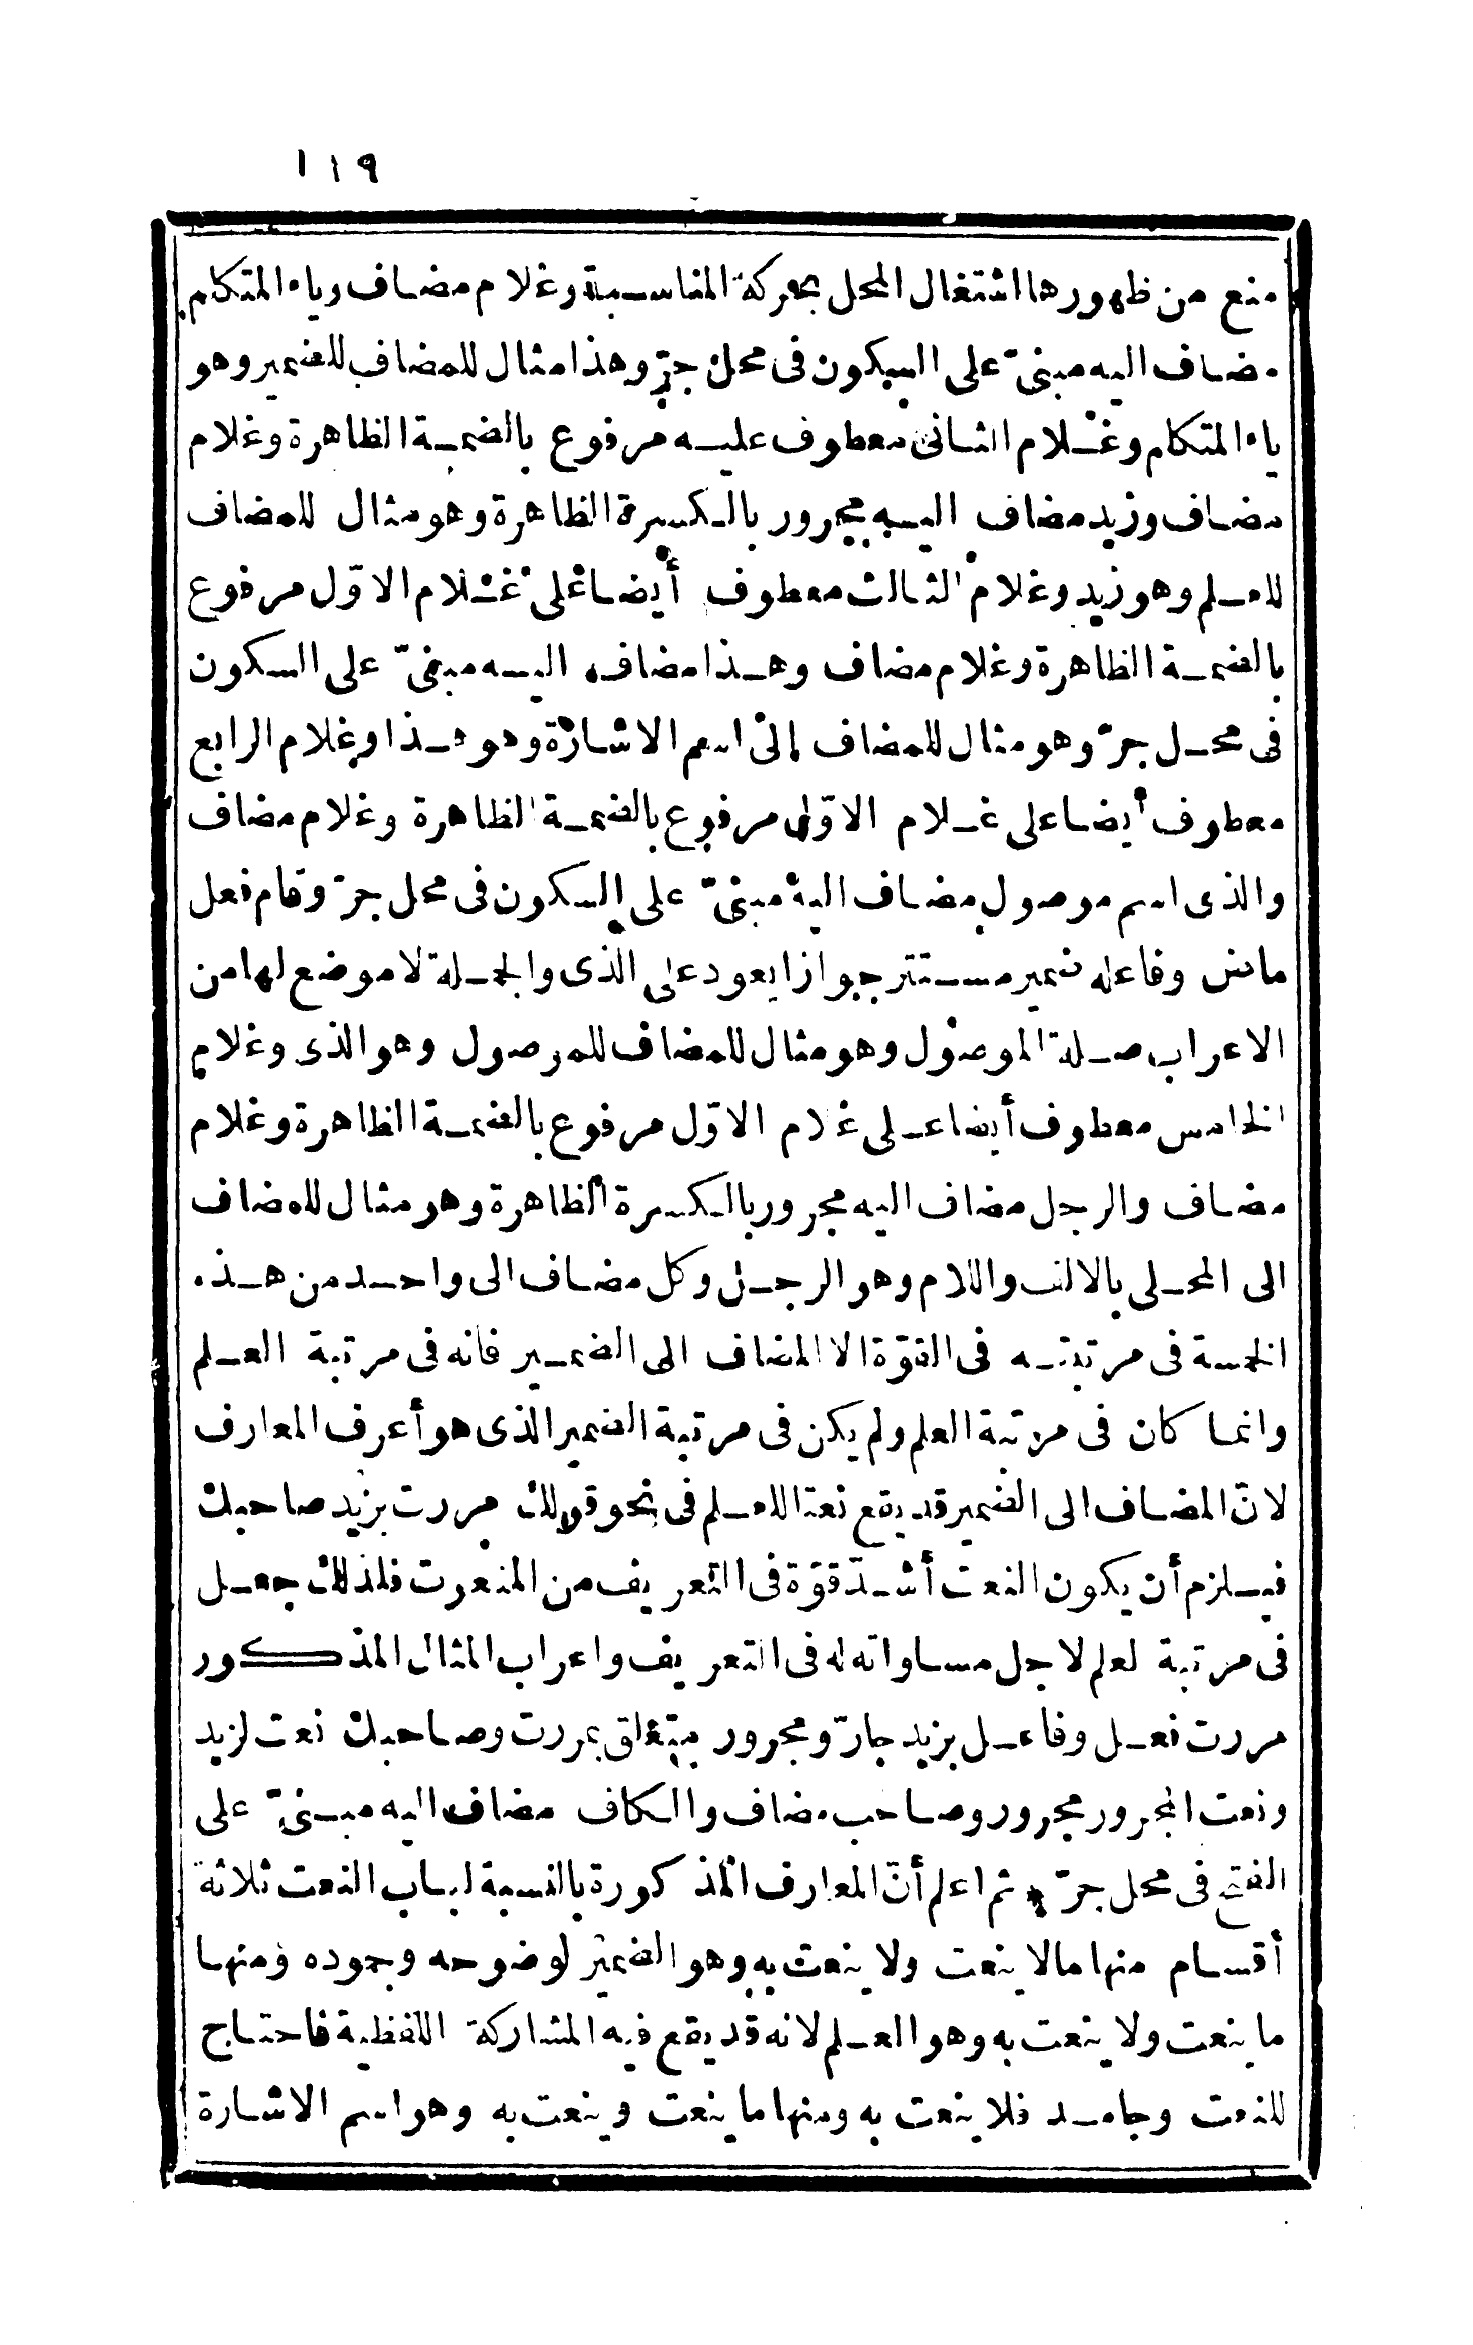 ١١٩
منع من ظهورها اشتغال المحل بحركة المناسبة وغلام مضاف وياء المتكلم
مضاف اليه مبنىّ على السكون فى محل جرّ وهذا مثال للمضاف للضمير وهو
ياء المتكلم وغلام الثانى معطوف عليه مرفوع بالضمة الظاهرة وغلام
مضاف وزيد مضاف اليه مجرور بالكسرة الظاهرة وهو مثال للمضاف
للعلم وهو زيد وغلام الثالث معطوف أيضا على غلام الاوّل مرفوع
بالضمة الظاهرة وغلام مضاف وهذا مضاف اليه مبنىّ على السكون
فى محل جرّ وهو مثال للمضاف الى اسم الاشارة وهو هذا وغلام الرابع
معطوف أيضا على غلام الاوّل مرفوع بالضمة الظاهرة وغلام مضاف
والذى اسم موصول مضاف اليه مبنىّ على السكون فى محل جرّ وقام فعل
ماض وفاعله ضمير مستتر جوازا يعود على الذى والجملة لا موضع لها من
الاعراب صلة الموصول وهو مثال للمضاف للموصول وهو الذى وغلام
الخامس معطوف أيضا على غلام الاوّل مرفوع بالضمة الظاهرة وغلام
مضاف والرجل مضاف اليه مجرور بالكسرة الظاهرة وهو مثال للمضاف
الى المحلى بالالف واللام وهو الرجل وكل مضاف الى واحد من هذه
الخمسة فى مرتبته فى القوّة الا المضاف الى الضمير فانه فى مرتبة العلم
وانما كان فى مرتبة العلم ولم يكن فى مرتبة الضمير الذى هو أعرف المعارف
لانّ المضاف الى الضمير قد يقع نعتا للعلم فى نحو قولك مررت بزيد صاحبك
فيلزم أن يكون النعت أشدّ قوّة فى التعريف من المنعوت فلذلك جعل
فى مرتبة العلم لاجل مساواته له فى التعريف واعراب المثال المذكور
مررت فعل وفاعل بزيد جارّ ومجرور متعلق بمررت وصاحبك نعت لزيد
ونعت المجرور مجرور وصاحب مضاف والكاف مضاف اليه مبنىّ على
الفتح فى محل جرّ * ثم اعلم أنّ المعارف المذكورة بالنسبة لباب النعت ثلاثة
أقسام منها مالا ينعت ولا ينعت به وهو الضمير لوضوحه وجموده ومنها
ما ينعت ولا ينعت به وهو العلم لانه قد يقع فيه المشاركة اللفظية فاحتاج
للنعت وجامد فلا ينعت به ومنها ما ينعت وينعت به وهو اسم الاشارة